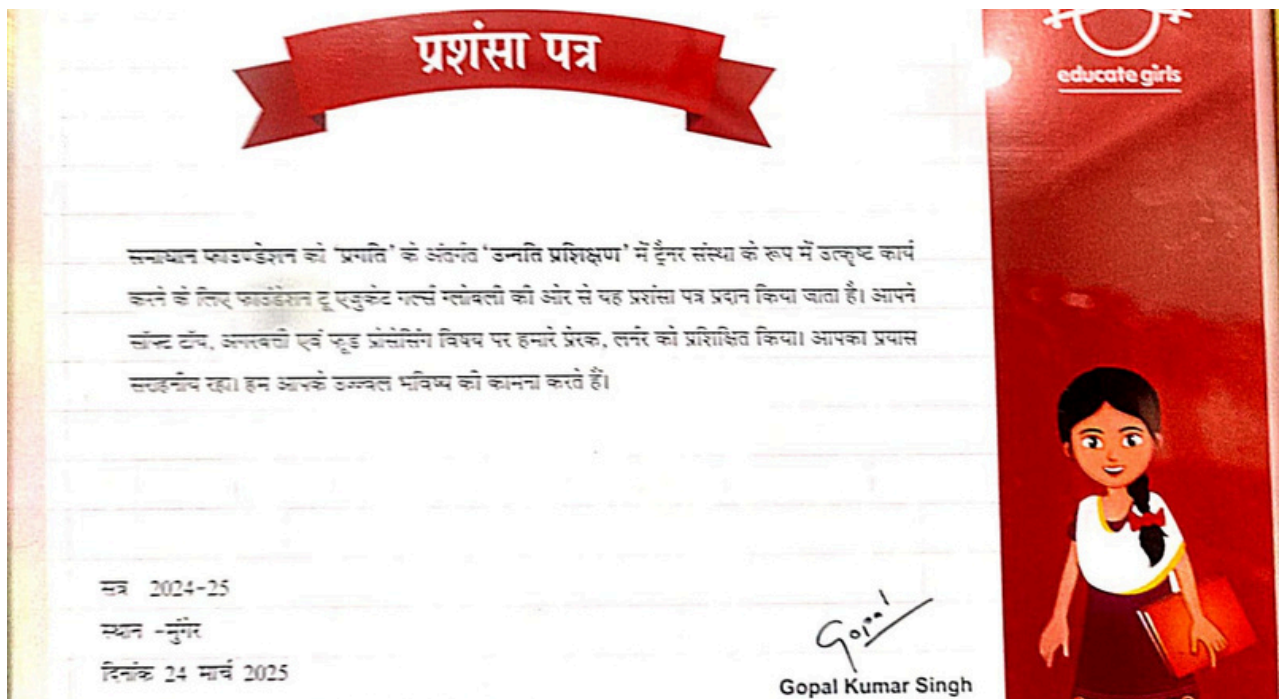 प्रशंसा पत्र
educate girls
समाधान फाउण्डेशन को 'प्रगति' के अंतर्गत 'उन्नति प्रशिक्षण' में ट्रैनर संस्था के रूप में उत्कृष्ट कार्य
करने के लिए फाउंडेशन टू एजुकेट गर्ल्स ग्लोबली की ओर से यह प्रशंसा पत्र प्रदान किया जाता है। आपने
सॉफ्ट टॉय, अगरबत्ती एवं फूड प्रोसेसिंग विषय पर हमारे प्रेरक, लर्नर को प्रशिक्षित किया। आपका प्रयास
सराहनीय रहा। हम आपके उज्ज्वल भविष्य की कामना करते हैं।
सत्र 2024-25
स्थान -मुंगेर
दिनांक 24 मार्च 2025
Gopal
Gopal Kumar Singh